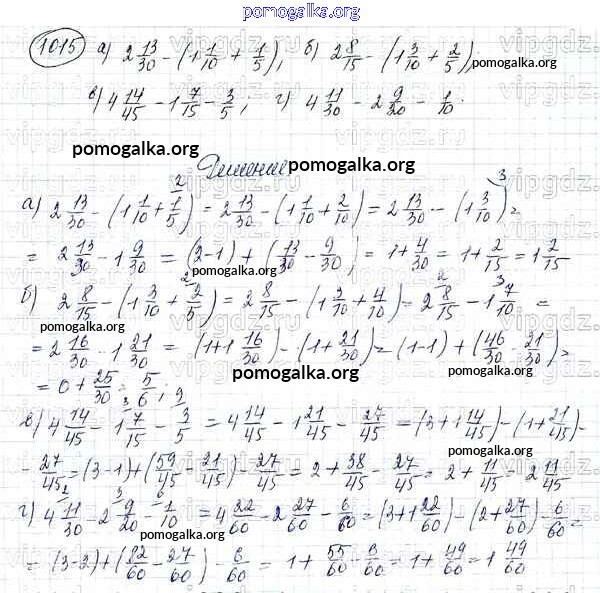 pomogalka.org
1015 а) 2 13/30 − (1 1/10 + 1/5); б) 2 8/15 − (1 3/10 + 2/5);
pomogalka.org
в) 4 14/45 − 1 7/15 − 3/5; г) 4 11/30 − 2 9/20 − 1/10.
pomogalka.org Решение pomogalka.org
а) 2 13/30 − (1 1/10 + 1/5) = 2 13/30 − (1 1/10 + 2/10) = 2 13/30 − (1 3/10) =
= 2 13/30 − 1 9/30 = (2−1) + (13/30 − 9/30) = 1 + 4/30 = 1 + 2/15 = 1 2/15
pomogalka.org
б) 2 8/15 − (1 3/10 + 2/5) = 2 8/15 − (1 3/10 + 4/10) = 2 8/15 − 1 7/10 =
pomogalka.org pomogalka.org
= 2 16/30 − 1 21/30 = (1+1 16/30) − (1+ 21/30) = (1−1) + (46/30 − 21/30) =
pomogalka.org
= 0 + 25/30 = 5/6;
в) 4 14/45 − 1 7/15 − 3/5 = 4 14/45 − 1 21/45 − 27/45 = (3+1 14/45) − (1+ 21/45) −
pomogalka.org
− 27/45 = (3−1) + (59/45 − 21/45) − 27/45 = 2 + 38/45 − 27/45 = 2 + 11/45 = 2 11/45
г) 4 11/30 − 2 9/20 − 1/10 = 4 22/60 − 2 27/60 − 6/60 = (3+1 22/60) − (2+ 27/60) − 6/60 =
pomogalka.org pomogalka.org
= (3−2) + (82/60 − 27/60) − 6/60 = 1 + 55/60 − 6/60 = 1 + 49/60 = 1 49/60
pomogalka.org